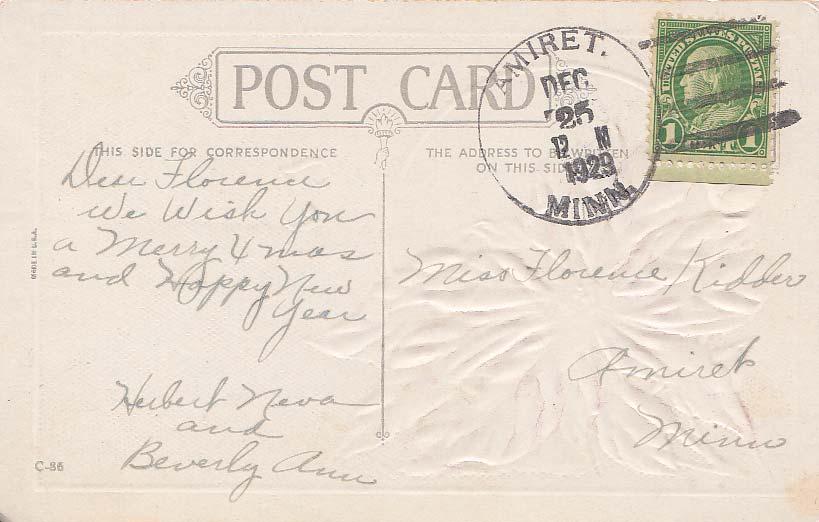 POST CARD
THIS SIDE FOR CORRESPONDENCE
THE ADDRESS TO BE WRITTEN
ON THIS SIDE
AMIRET.
DEC
25
12 M
1929
MINN.
UNITED STATES POSTAGE
1 1
MADE IN U.S.A.
Dear Florence
We Wish You
a Merry Xmas
and Happy New
Year
Herbert Neva
and
Beverly Ann
Miss Florence Kidder
Amiret
Minn
C-86